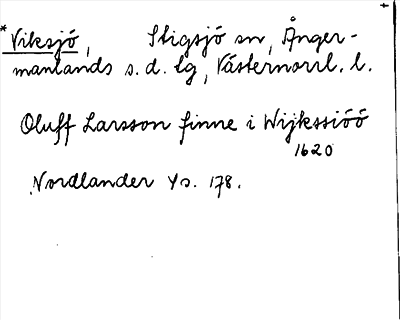 *Viksjö, Stigsjö sn, Ånger-
manlands s. d. lg, Västernorrl. l.
Oluff Larsson finne i Wijkssiöö
1620
Nordlander Ys. 178.